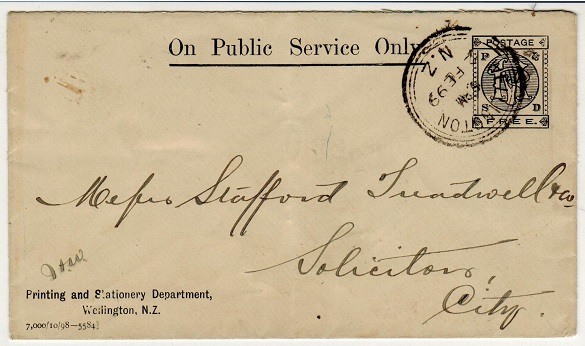 On Public Service Only.
POSTAGE
P S
S D
FREE.
WELLINGTON
N.Z
FE 99
PM
Messrs Stafford Treadwell & Co
Solicitors,
City.
Printing and Stationery Department,
Wellington, N.Z.
7,000/10/98—5584]